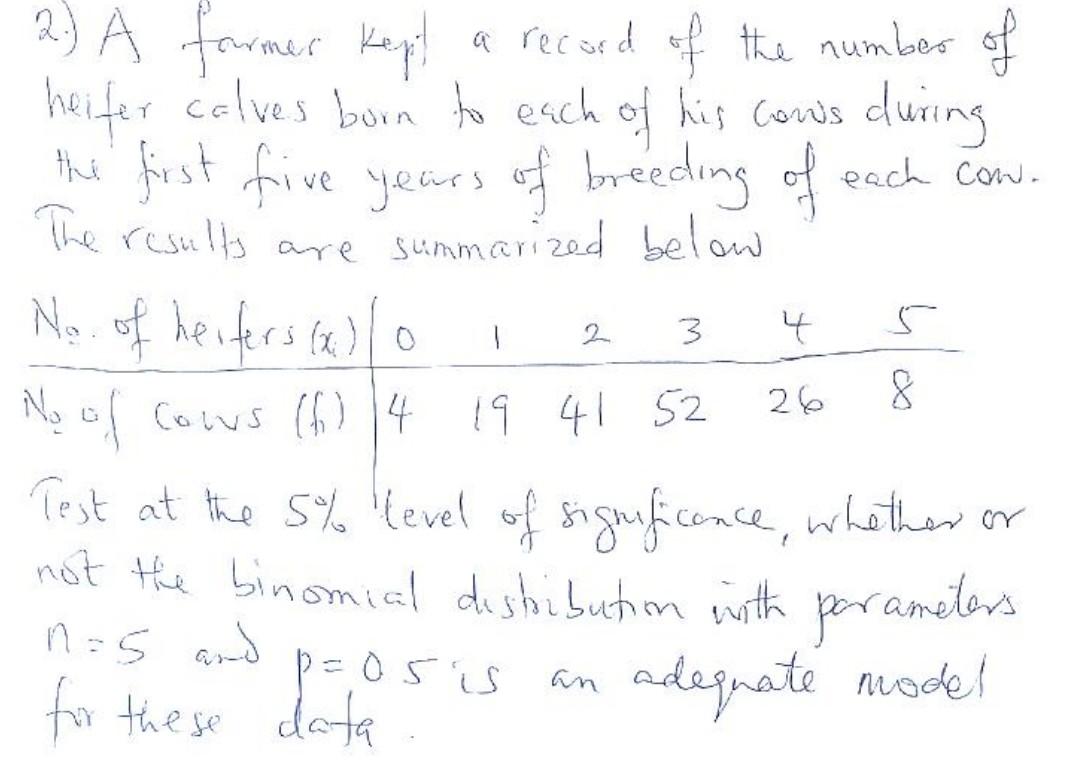 2.) A farmer kept a record of the number of
heifer calves born to each of his cows during
the first five years of breeding of each cow.
The results are summarized below
No. of heifers (x) 0 1 2 3 4 5
No of cows (f) 4 19 41 52 26 8
Test at the 5% level of significance, whether or
not the binomial distribution with parameters
n=5 and p=0 5 is an adequate model
for these data.